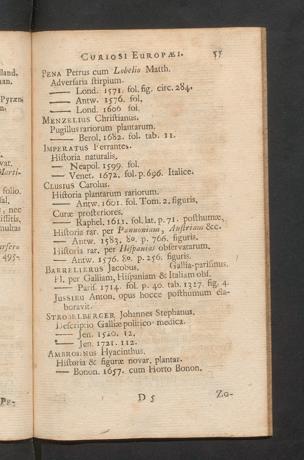 CURIOSI EUROPÆI. 57
PENA Petrus cum Lobelio Matth.
Adversaria stirpium.
—— Lond. 1571. fol. fig. circ. 284.
—— Antw. 1576. fol.
—— Lond. 1606 fol.
MENZELIUS Christianus.
Pugillus rariorum plantarum.
—— Berol, 1682. fol. tab. 11.
IMPERATUS Ferrantes.
Historia naturalis,
—— Neapol. 1599. fol.
—— Venet. 1672. fol. p. 696. Italice.
CLUSIUS Carolus.
Historia plantarum rariorum.
—— Antw. 1601. fol. Tom. 2. figuris,
Curæ posteriores,
—— Raphel, 1611. fol. lat. p. 71. posthumæ,
Historia rar. per Pannoniam, Austriam &c.
—— Antw. 1583, 8o. p. 766. figuris.
Historia rar. per Hispanias observatarum,
—— Antw. 1576. 8o. p. 256. figuris.
BARRELIERUS Jacobus, Gallia-parisinus.
Pl. per Galliam, Hispaniam & Italiam obs.
—— Paris. 1714. fol. p. 40. tab. 1327. fig. 4.
JUSSIEU Anton, opus hocce posthumum ela-
boravit.
STROBELBERGER Johannes Stephanus,
Descriptio Galliæ politico-medica.
—— Jen. 1620. 12.
—— Jen. 1721. 112.
AMBROSINUS Hyacinthus,
Historia & figuræ novar, plantar.
—— Bonon. 1657. cum Horto Bonon.
D 5 Zo-